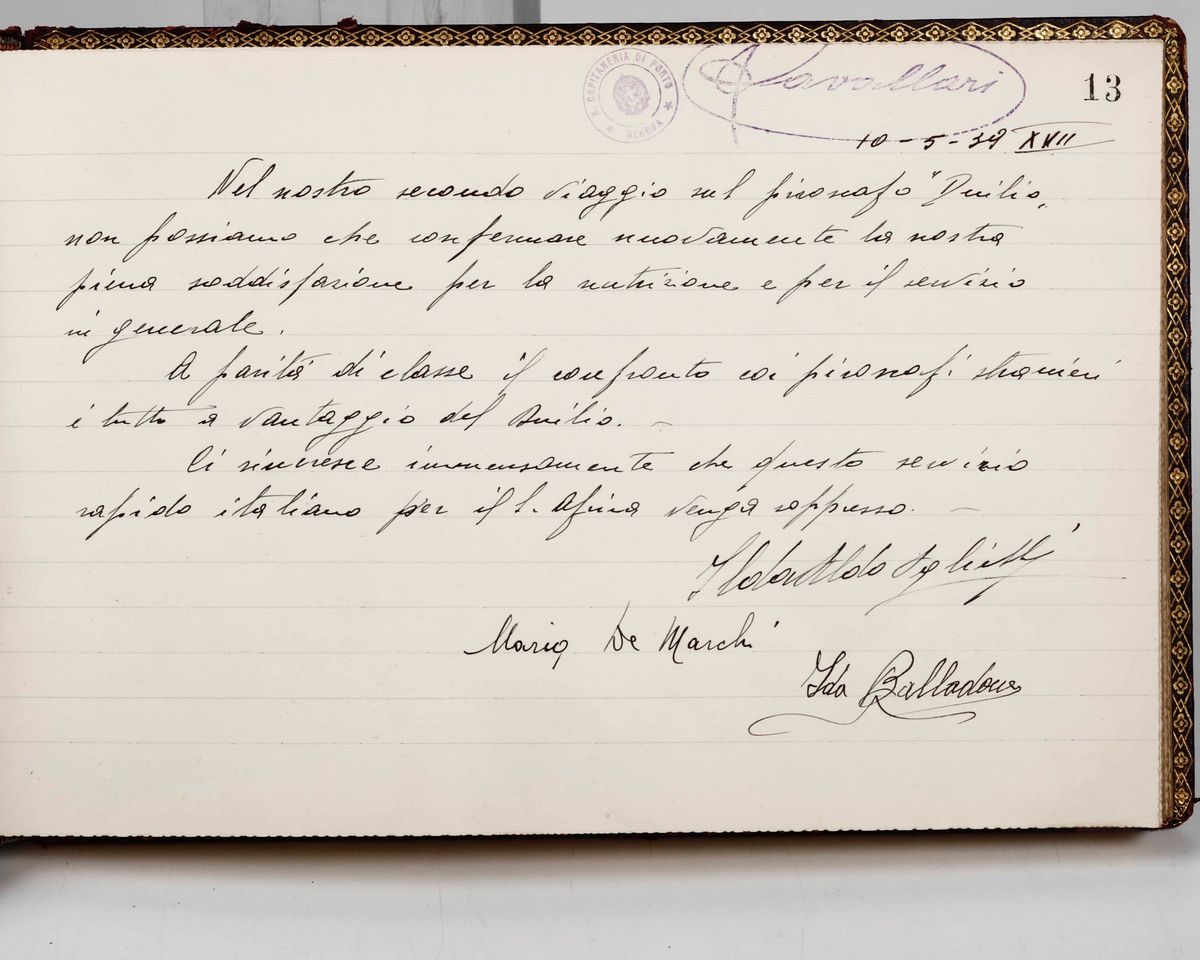 R. CAPITANERIA DI PORTO
GENOVA
Cavallari
13
10-5-39 XVII
Nel nostro secondo viaggio sul piroscafo "Duilio"
non possiamo che confermare nuovamente la nostra
piena soddisfazione per la nutrizione e per il servizio
in generale.
A parità di classe il confronto coi piroscafi stranieri
è tutto a vantaggio del Duilio. –
Ci rincresce immensamente che questo servizio
rapido italiano per il S. Africa venga soppresso. –
Maria De Marchi
Ida Balladore